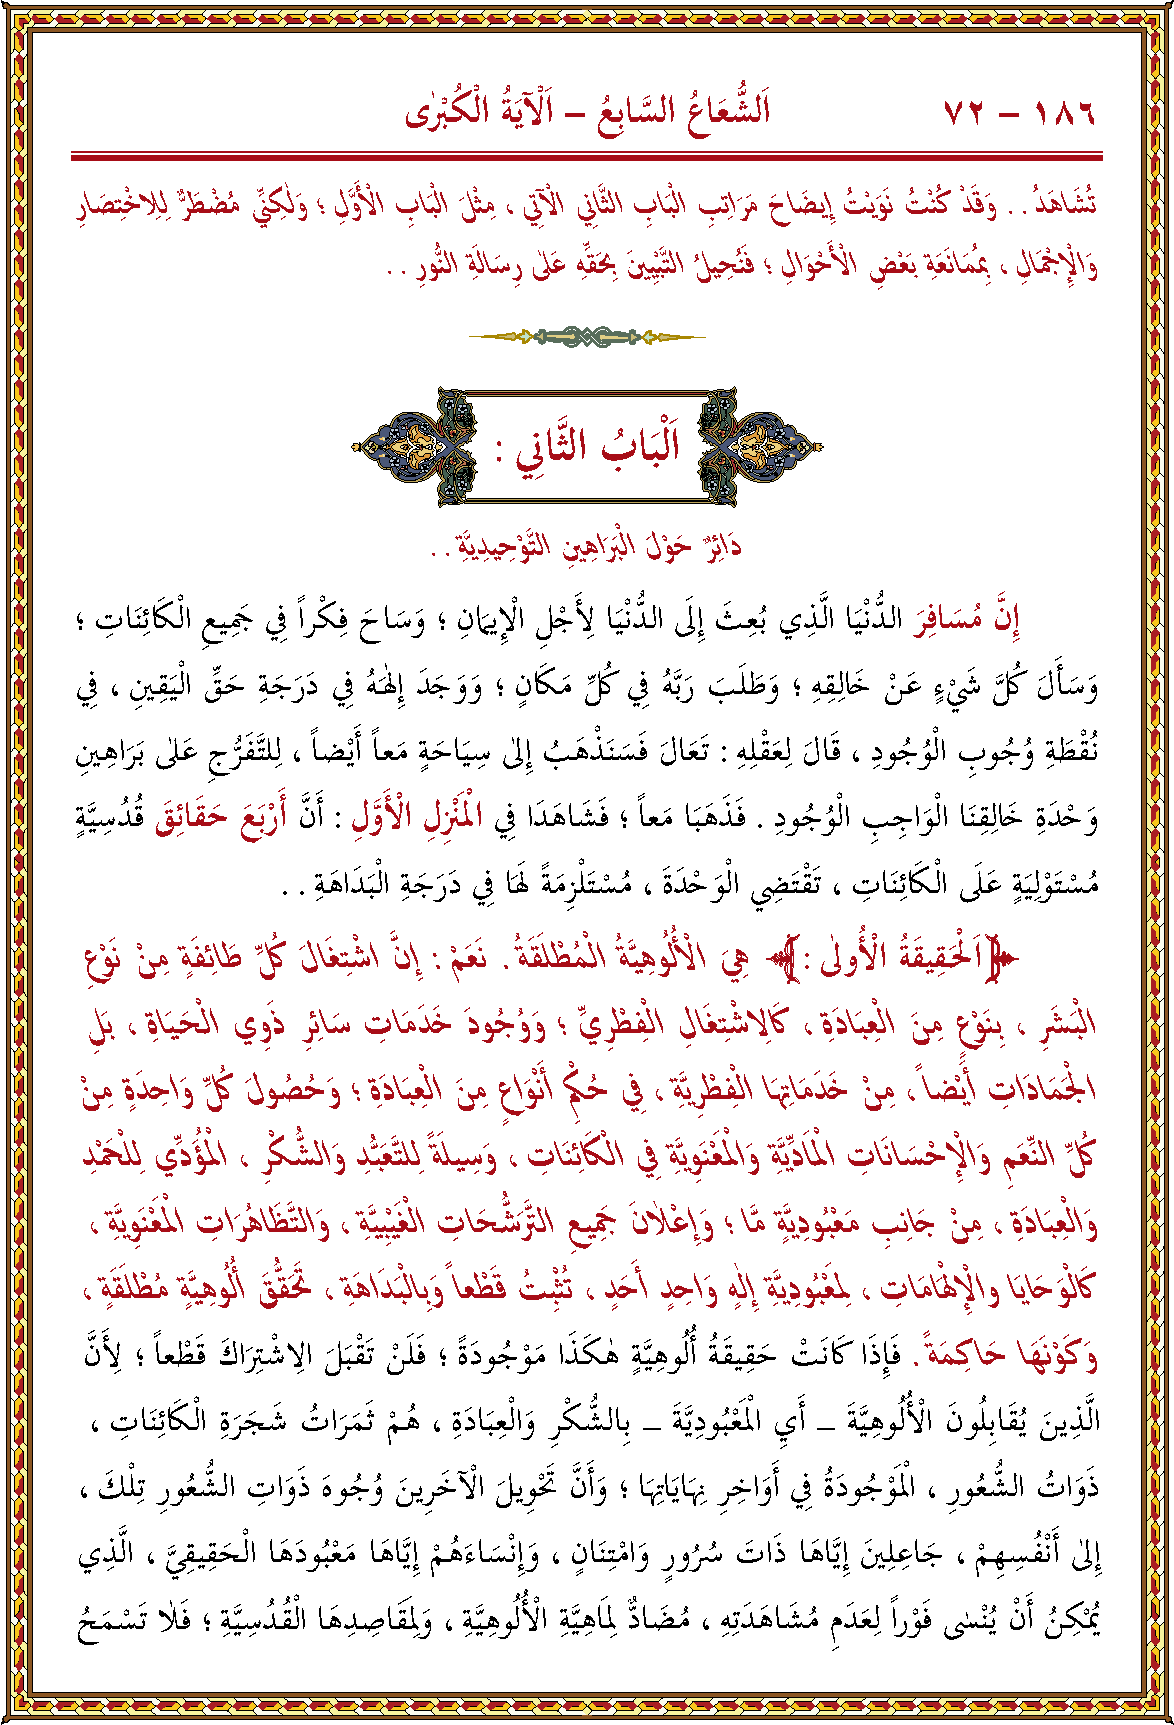 ١٨٦ – ٧٢ اَلشُّعَاعُ السَّابِعُ – اَلْآيَةُ الْكُبْرٰى
تُشَاهَدُ . . وَقَدْ كُنْتُ نَوَيْتُ إِيضَاحَ مَرَاتِبِ الْبَابِ الثَّانِي الْآتِي ، مِثْلَ الْبَابِ الْأَوَّلِ ؛ وَلٰكِنِّي مُضْطَرٌّ لِلِاخْتِصَارِ
وَالْإِجْمَالِ ، بِمُمَانَعَةِ بَعْضِ الْأَحْوَالِ ؛ فَنُحِيلُ التَّبْيِينَ بِحَقِّهِ عَلٰى رِسَالَةِ النُّورِ . .
اَلْبَابُ الثَّانِي :
دَائِرٌ حَوْلَ الْبَرَاهِينِ التَّوْحِيدِيَّةِ . .
إِنَّ مُسَافِرَ الدُّنْيَا الَّذِي بُعِثَ إِلَى الدُّنْيَا لِأَجْلِ الْإِيمَانِ ؛ وَسَاحَ فِكْراً فِي جَمِيعِ الْكَائِنَاتِ ؛
وَسَأَلَ كُلَّ شَيْءٍ عَنْ خَالِقِهِ ؛ وَطَلَبَ رَبَّهُ فِي كُلِّ مَكَانٍ ؛ وَوَجَدَ إِلٰهَهُ فِي دَرَجَةِ حَقِّ الْيَقِينِ ، فِي
نُقْطَةِ وُجُوبِ الْوُجُودِ ، قَالَ لِعَقْلِهِ : تَعَالَ فَسَنَذْهَبُ إِلٰى سِيَاحَةٍ مَعاً أَيْضاً ، لِلتَّفَرُّجِ عَلٰى بَرَاهِينِ
وَحْدَةِ خَالِقِنَا الْوَاجِبِ الْوُجُودِ . فَذَهَبَا مَعاً ؛ فَشَاهَدَا فِي الْمَنْزِلِ الْأَوَّلِ : أَنَّ أَرْبَعَ حَقَائِقَ قُدُسِيَّةٍ
مُسْتَوْلِيَةٍ عَلَى الْكَائِنَاتِ ، تَقْتَضِي الْوَحْدَةَ ، مُسْتَلْزِمَةً لَهَا فِي دَرَجَةِ الْبَدَاهَةِ . .
﴿اَلْحَقِيقَةُ الْأُولٰى :﴾ هِيَ الْأُلُوهِيَّةُ الْمُطْلَقَةُ . نَعَمْ : إِنَّ اشْتِغَالَ كُلِّ طَائِفَةٍ مِنْ نَوْعِ
الْبَشَرِ ، بِنَوْعٍ مِنَ الْعِبَادَةِ ، كَالِاشْتِغَالِ الْفِطْرِيِّ ؛ وَوُجُودَ خَدَمَاتِ سَائِرِ ذَوِي الْحَيَاةِ ، بَلِ
الْجَمَادَاتِ أَيْضاً ، مِنْ خَدَمَاتِهَا الْفِطْرِيَّةِ ، فِي حُكْمِ أَنْوَاعٍ مِنَ الْعِبَادَةِ ؛ وَحُصُولَ كُلِّ وَاحِدَةٍ مِنْ
كُلِّ النِّعَمِ وَالْإِحْسَانَاتِ الْمَادِّيَّةِ وَالْمَعْنَوِيَّةِ فِي الْكَائِنَاتِ ، وَسِيلَةً لِلتَّعَبُّدِ وَالشُّكْرِ ، الْمُؤَدِّي لِلْحَمْدِ
وَالْعِبَادَةِ ، مِنْ جَانِبِ مَعْبُودِيَّةٍ مَّا ؛ وَإِعْلَانَ جَمِيعِ التَّرَشُّحَاتِ الْغَيْبِيَّةِ ، وَالتَّظَاهُرَاتِ الْمَعْنَوِيَّةِ ،
كَالْوَحَايَا وَالْإِلْهَامَاتِ ، لِمَعْبُودِيَّةِ إِلٰهٍ وَاحِدٍ أَحَدٍ ، تُثْبِتُ قَطْعاً وَبِالْبَدَاهَةِ ، تَحَقُّقَ أُلُوهِيَّةٍ مُطْلَقَةٍ ،
وَكَوْنَهَا حَاكِمَةً . فَإِذَا كَانَتْ حَقِيقَةُ أُلُوهِيَّةٍ هٰكَذَا مَوْجُودَةً ؛ فَلَنْ تَقْبَلَ الِاشْتِرَاكَ قَطْعاً ؛ لِأَنَّ
الَّذِينَ يُقَابِلُونَ الْأُلُوهِيَّةَ – أَيِ الْمَعْبُودِيَّةَ – بِالشُّكْرِ وَالْعِبَادَةِ ، هُمْ ثَمَرَاتُ شَجَرَةِ الْكَائِنَاتِ ،
ذَوَاتُ الشُّعُورِ ، الْمَوْجُودَةُ فِي أَوَاخِرِ نِهَايَاتِهَا ؛ وَأَنَّ تَحْوِيلَ الْآخَرِينَ وُجُوهَ ذَوَاتِ الشُّعُورِ تِلْكَ ،
إِلٰى أَنْفُسِهِمْ ، جَاعِلِينَ إِيَّاهَا ذَاتَ سُرُورٍ وَامْتِنَانٍ ، وَإِنْسَاءَهُمْ إِيَّاهَا مَعْبُودَهَا الْحَقِيقِيَّ ، الَّذِي
يُمْكِنُ أَنْ يُنْسٰى فَوْراً لِعَدَمِ مُشَاهَدَتِهِ ، مُضَادٌّ لِمَاهِيَّةِ الْأُلُوهِيَّةِ ، وَلِمَقَاصِدِهَا الْقُدْسِيَّةِ ؛ فَلَا تَسْمَحُ